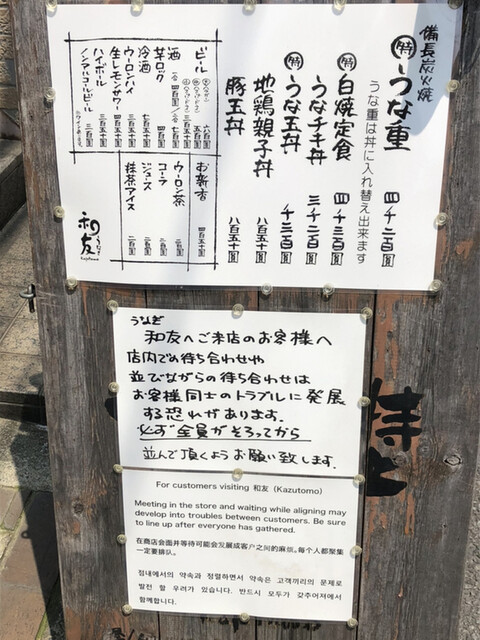 備長炭火焼
特 うな重 四千二百円
うな重は丼に入れ替え出来ます
特 白焼定食 四千三百円
うなチキ丼 三千二百円
特 うな玉丼 千三百円
地鶏親子丼 八百五十円
豚玉丼 八百五十円
ビール
酒
芋ロック
冷酒 七百五十円
ウーロンハイ 三百五十円
生レモンサワー 四百五十円
ハイボール
ノンアルコールビール 三百円
お新香 四百五十円
ウーロン茶 二百円
コーラ 二百円
ジュース 二百円
抹茶アイス 二百円
うなぎ
和友
うなぎ
和友へご来店のお客様へ
店内での待ち合わせや
並びながらの待ち合わせは
お客様同士のトラブルに発展
する恐れがあります。
必ず全員がそろってから
並んで頂くようお願い致します。
For customers visiting 和友 (Kazutomo)
Meeting in the store and waiting while aligning may
develop into troubles between customers. Be sure
to line up after everyone has gathered.
在商店会面并等待可能会发展成客户之间的麻烦。每个人都聚集
一定要排队。
점내에서의 약속과 정렬하면서 약속은 고객끼리의 문제로
발전 할 우려가 있습니다. 반드시 모두가 갖추어져에서
함께합니다.